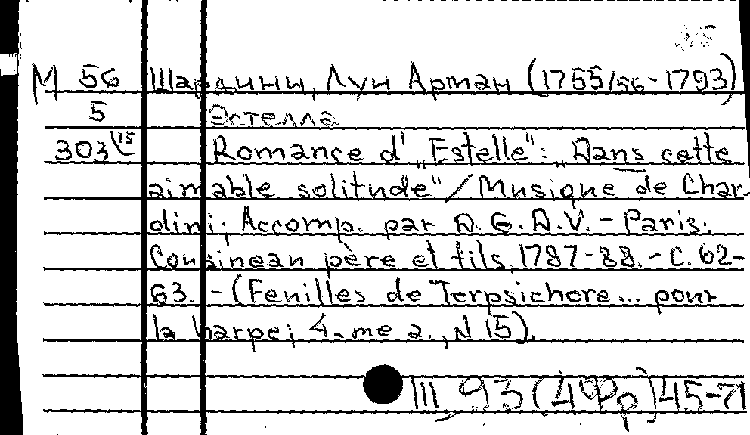 35
М 56 Шардини, Луи Арман (1755/56-1793)
5 Эстелла
303/15 Romance d' „Estelle": „Dans cette
aimable solitude"/Musique de Char
dini; Accomp. par D.G.D.V. - Paris:
Cousinean père et fils, 1787-88. - С. 62-
63. - (Feuilles de Terpsichore... pour
la harpe; 4-me a., N 15).
III, 93 (4Фр) 45-71